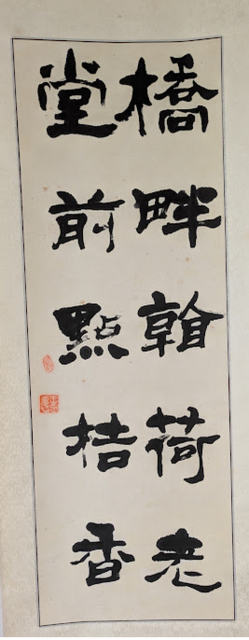 橋畔翰荷老
堂前點桔香